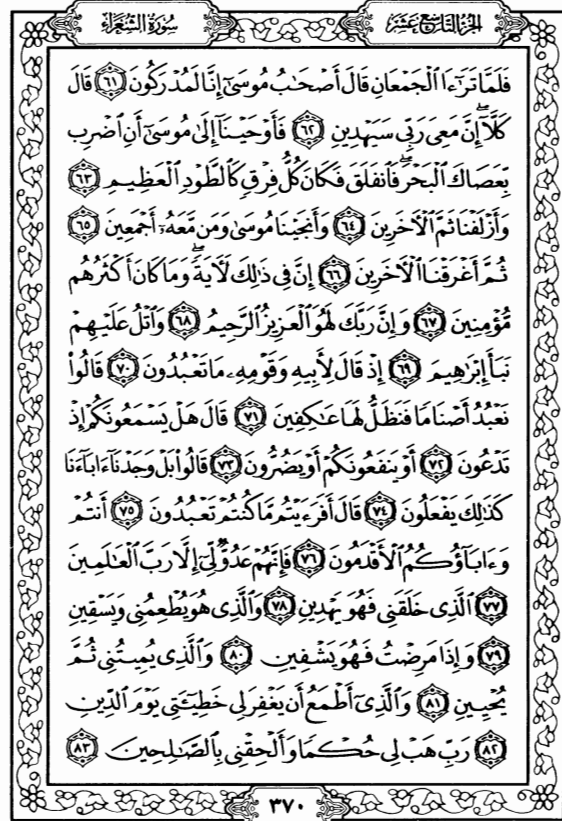 سورة الشعراء
الجزء التاسع عشر
فَلَمَّا تَرَٰٓءَا ٱلْجَمْعَانِ قَالَ أَصْحَٰبُ مُوسَىٰٓ إِنَّا لَمُدْرَكُونَ ٦١ قَالَ
كَلَّآ ۖ إِنَّ مَعِىَ رَبِّى سَيَهْدِينِ ٦٢ فَأَوْحَيْنَآ إِلَىٰ مُوسَىٰٓ أَنِ ٱضْرِب
بِّعَصَاكَ ٱلْبَحْرَ ۖ فَٱنفَلَقَ فَكَانَ كُلُّ فِرْقٍ كَٱلطَّوْدِ ٱلْعَظِيمِ ٦٣
وَأَزْلَفْنَا ثَمَّ ٱلْءَاخَرِينَ ٦٤ وَأَنجَيْنَا مُوسَىٰ وَمَن مَّعَهُۥٓ أَجْمَعِينَ ٦٥
ثُمَّ أَغْرَقْنَا ٱلْءَاخَرِينَ ٦٦ إِنَّ فِى ذَٰلِكَ لَءَايَةً ۖ وَمَا كَانَ أَكْثَرُهُم
مُّؤْمِنِينَ ٦٧ وَإِنَّ رَبَّكَ لَهُوَ ٱلْعَزِيزُ ٱلرَّحِيمُ ٦٨ وَٱتْلُ عَلَيْهِمْ
نَبَأَ إِبْرَٰهِيمَ ٦٩ إِذْ قَالَ لِأَبِيهِ وَقَوْمِهِۦ مَا تَعْبُدُونَ ٧٠ قَالُوا۟
نَعْبُدُ أَصْنَامًا فَنَظَلُّ لَهَا عَٰكِفِينَ ٧١ قَالَ هَلْ يَسْمَعُونَكُمْ إِذْ
تَدْعُونَ ٧٢ أَوْ يَنفَعُونَكُمْ أَوْ يَضُرُّونَ ٧٣ قَالُوا۟ بَلْ وَجَدْنَآ ءَابَآءَنَا
كَذَٰلِكَ يَفْعَلُونَ ٧٤ قَالَ أَفَرَءَيْتُم مَّا كُنتُمْ تَعْبُدُونَ ٧٥ أَنتُمْ
وَءَابَآؤُكُمُ ٱلْأَقْدَمُونَ ٧٦ فَإِنَّهُمْ عَدُوٌّ لِّىٓ إِلَّا رَبَّ ٱلْعَٰلَمِينَ
٧٧ ٱلَّذِى خَلَقَنِى فَهُوَ يَهْدِينِ ٧٨ وَٱلَّذِى هُوَ يُطْعِمُنِى وَيَسْقِينِ
٧٩ وَإِذَا مَرِضْتُ فَهُوَ يَشْفِينِ ٨٠ وَٱلَّذِى يُمِيتُنِى ثُمَّ
يُحْيِينِ ٨١ وَٱلَّذِىٓ أَطْمَعُ أَن يَغْفِرَ لِى خَطِيٓـَٔتِى يَوْمَ ٱلدِّينِ
٨٢ رَبِّ هَبْ لِى حُكْمًا وَأَلْحِقْنِى بِٱلصَّٰلِحِينَ ٨٣
٣٧٠